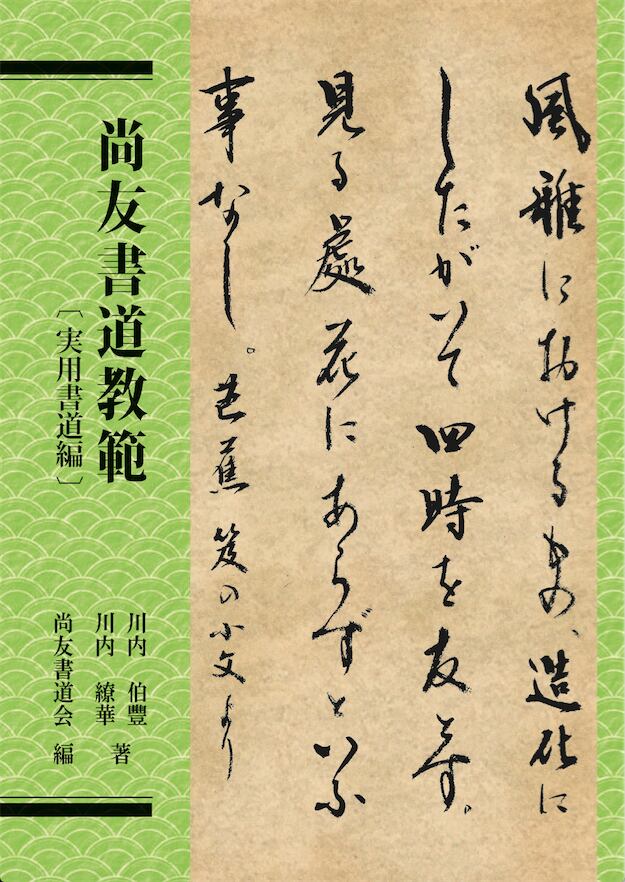 風雅におけるもの、造化に
したがいて四時を友とす。
見る處花にあらずといふ
事なし。芭蕉 笈の小文より
尚友書道教範
〔実用書道編〕
川内 伯豐
川内 繚華 著
尚友書道会 編